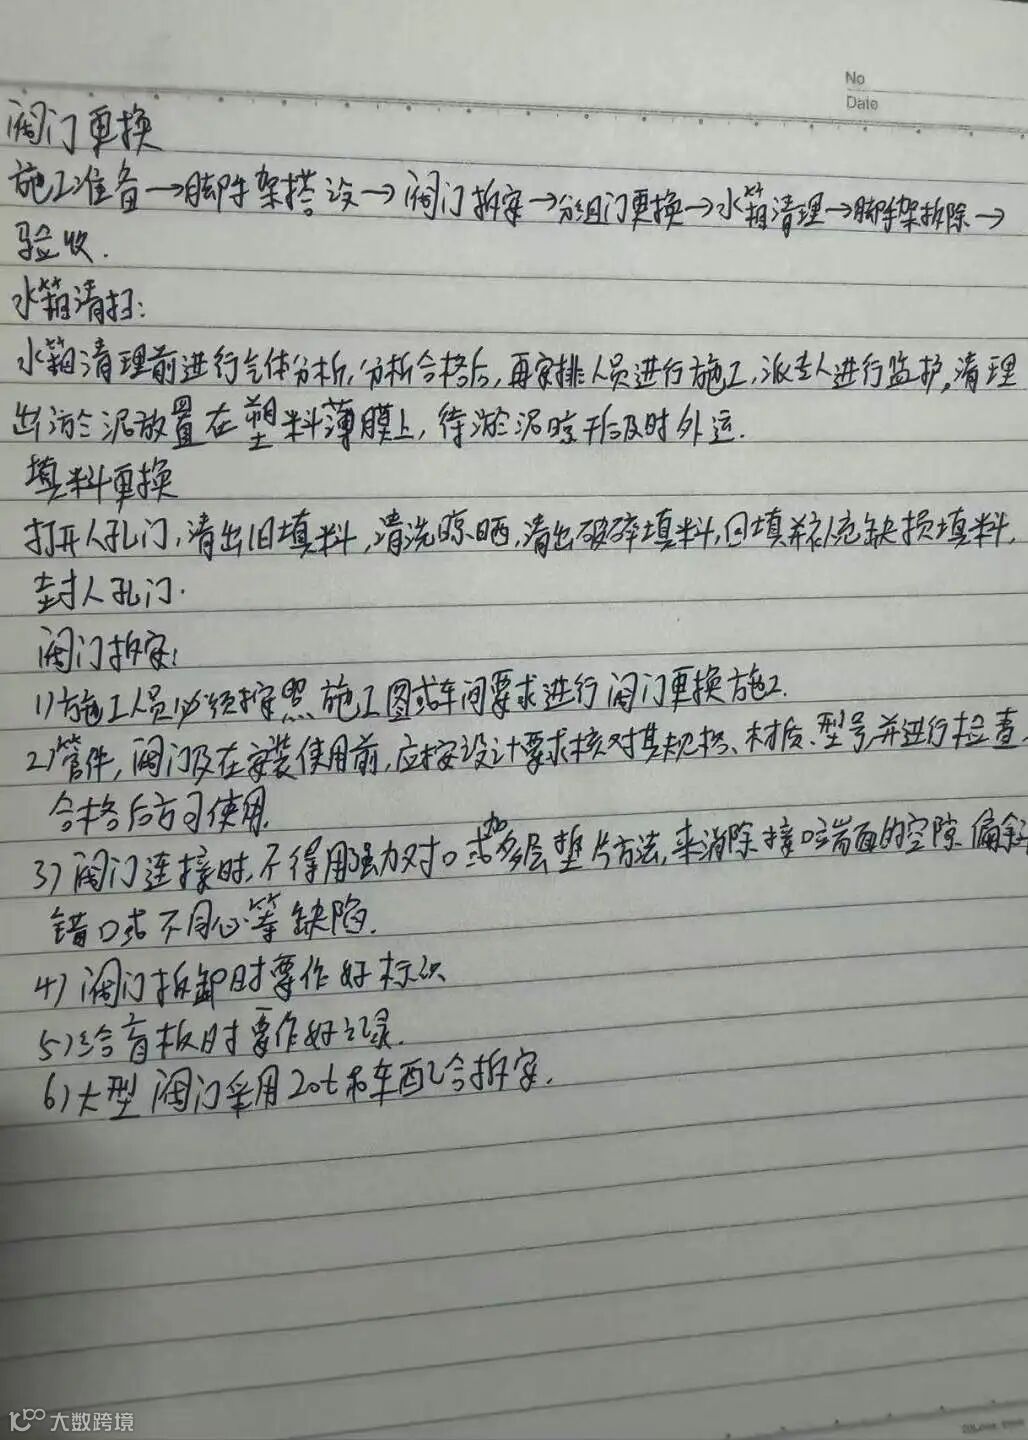 No
Date
阀门更换
施工准备→脚手架搭设→阀门拆安→分组门更换→水箱清理→脚手架拆除→
验收.
水箱清扫:
水箱清理前进行气体分析,分析合格后,再安排人员进行施工,派专人进行监护,清理
出淤泥放置在塑料薄膜上,待淤泥晾干后及时外运.
填料更换
打开人孔门,清出旧填料,清洗晾晒,清出破碎填料,回填并补充缺损填料,
封人孔门.
阀门拆安:
1)施工人员必须按照施工图或车间要求进行阀门更换施工.
2)管件,阀门及在安装使用前,应按设计要求核对其规格、材质、型号,并进行检查,
合格后方可使用.
3)阀门连接时,不得用强力对口或加多层垫片方法,来消除接口端面的空隙、偏斜
错口或不同心等缺陷.
4)阀门拆卸时要作好标识
5)给盲板时要作好记录.
6)大型阀门采用20t吊车配合拆安.
大数跨境